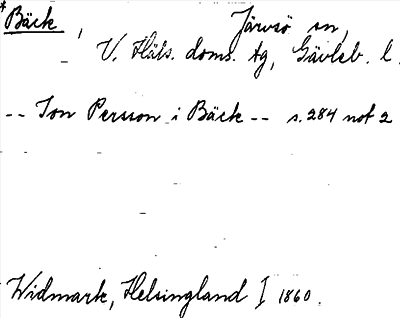 *Bäck, Järvsö sn,
V. Häls. doms. tg, Gävleb. l.
-- Jon Persson i Bäck -- s. 284 not 2
Widmark, Helsingland I 1860.